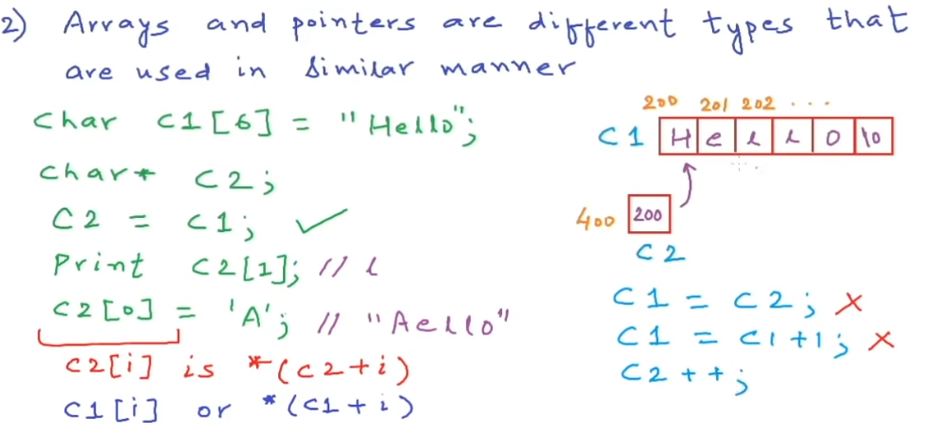 2) Arrays and pointers are different types that
are used in similar manner
Char C1[6] = "Hello";
Char* C2;
C2 = C1; ✓
Print C2[1]; // l
C2[0] = 'A'; // "Aello"
C2[i] is *(C2+i)
C1[i] or *(C1+i)
200 201 202 . . .
C1 H e l l o \0
400 200
C2
C1 = C2; X
C1 = C1+1; X
C2++;